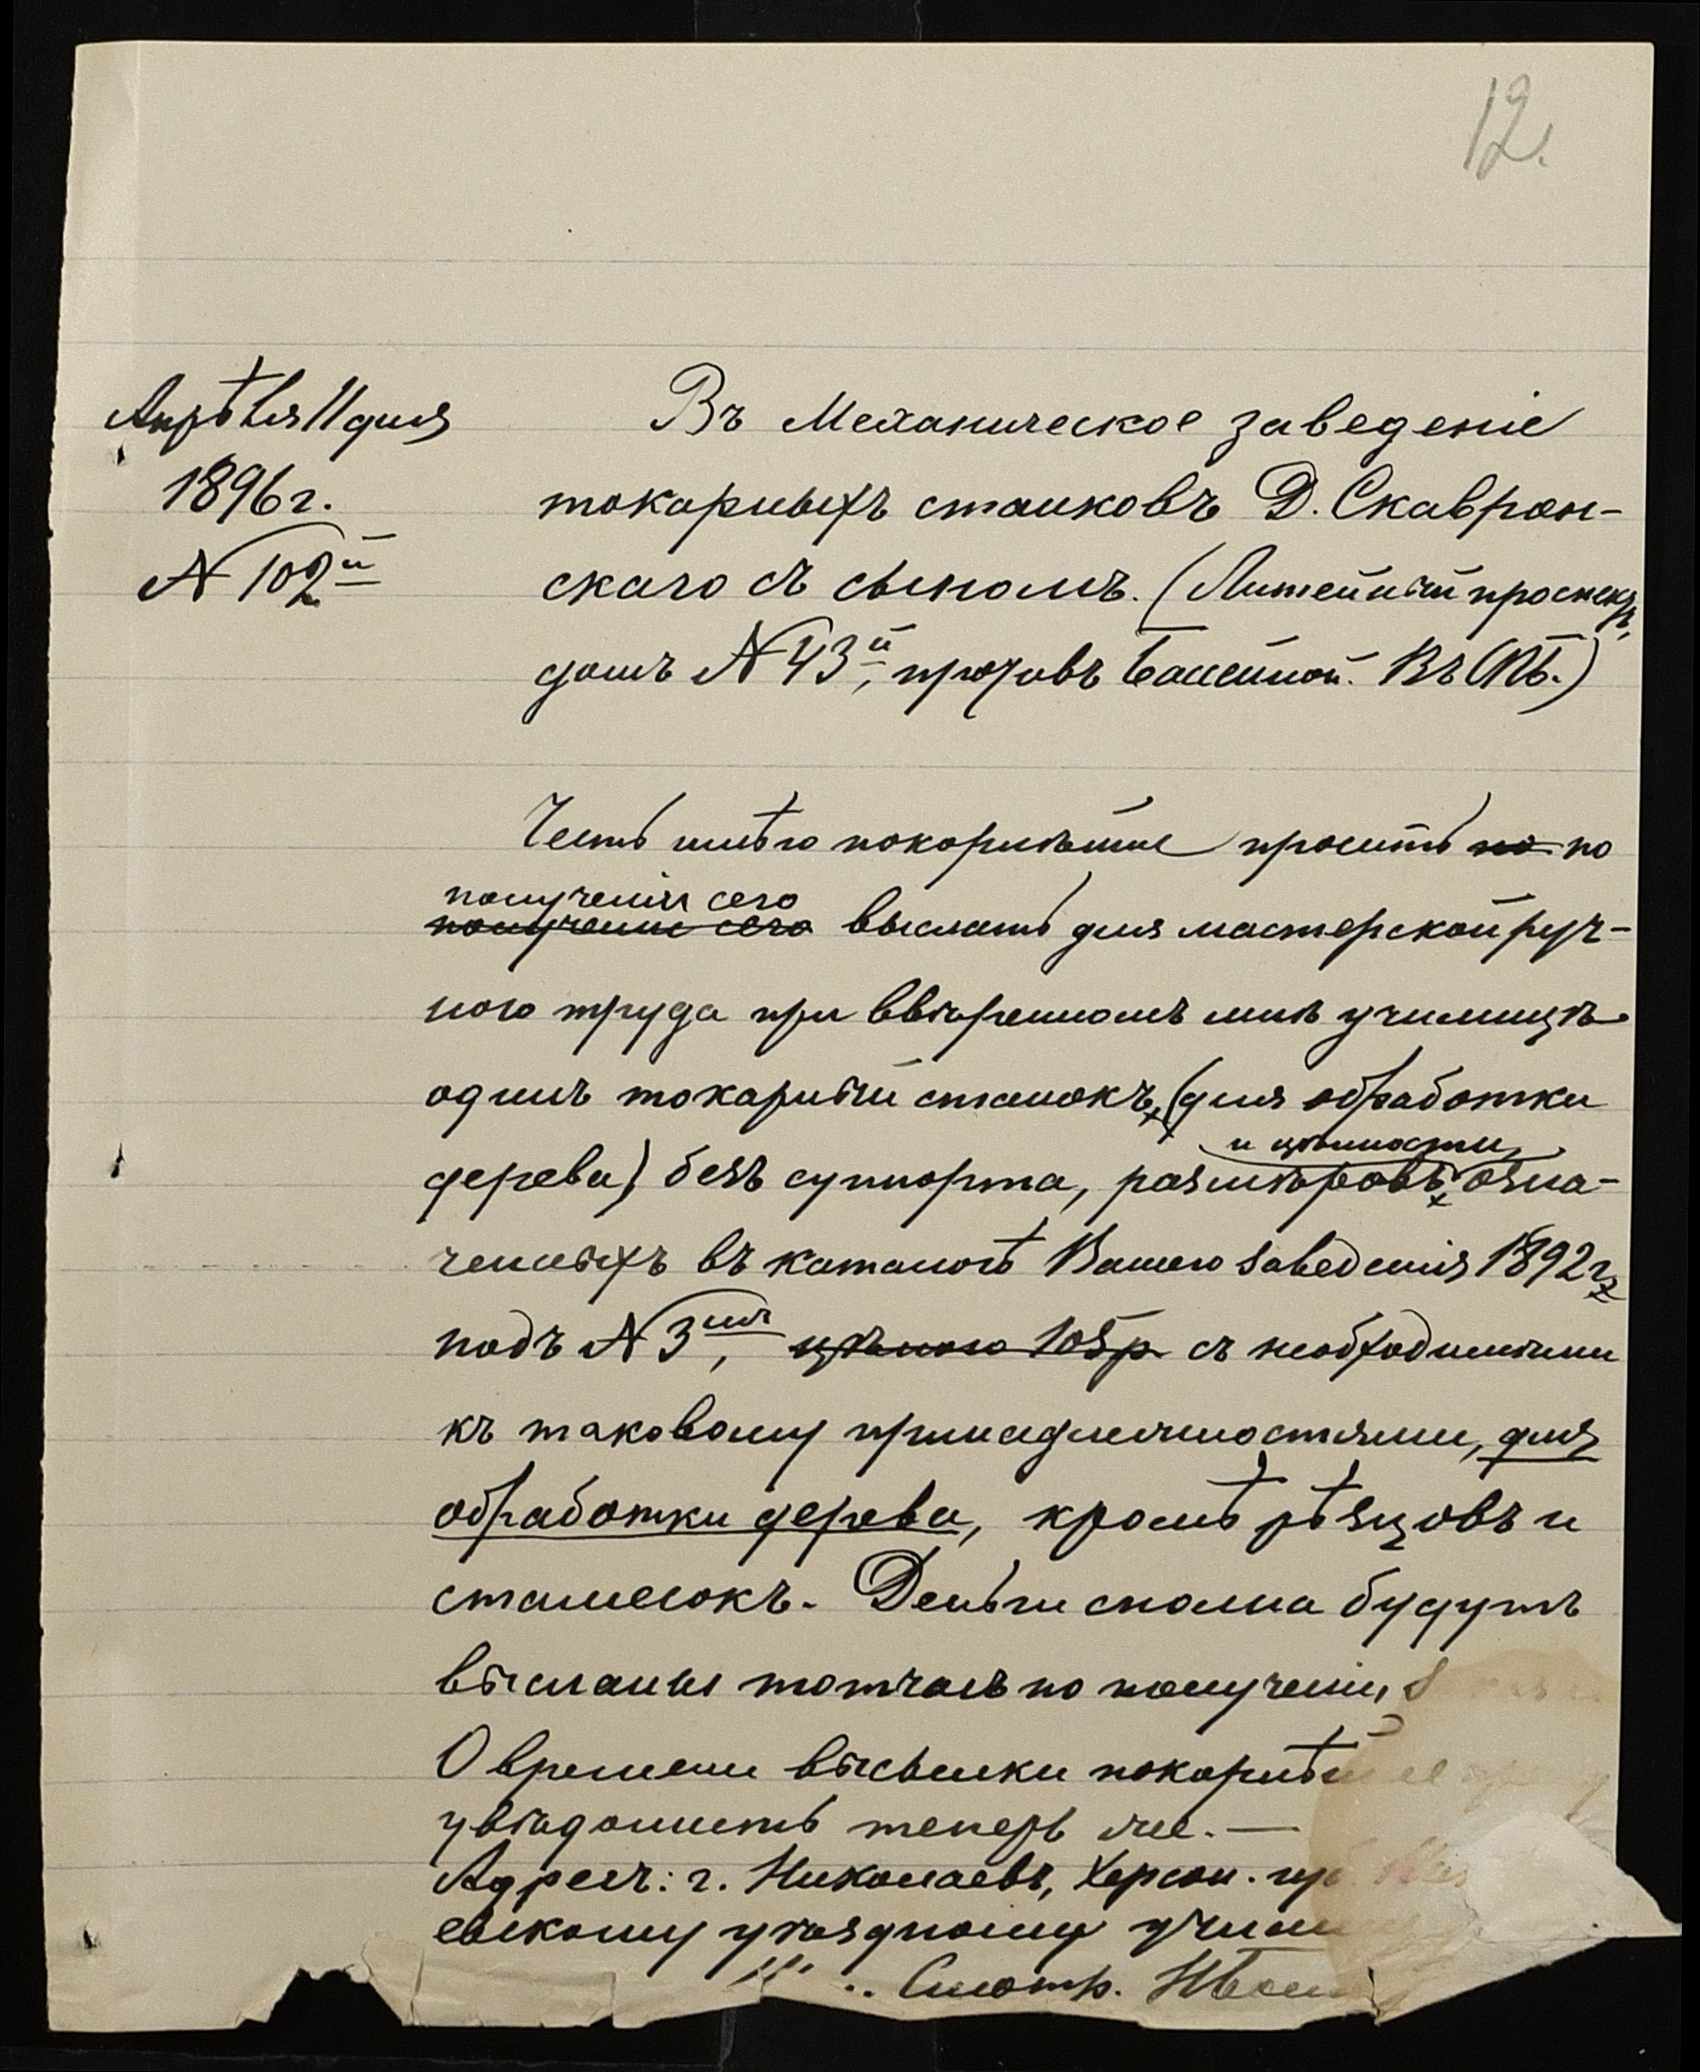 12.
Апрѣля 11 дня
1896 г.
№ 102й
Въ Механическое заведеніе
токарныхъ станковъ Д. Скаврон-
скаго съ сыномъ. (Литейный проспектъ,
домъ № 43й, противъ Бассейной. Въ СПБ.)
Честь имѣю покорнѣйше просить по по
полученіи сего
полученіи сего выслать для мастерской руч-
ного труда при ввѣренномъ мнѣ училищѣ
одинъ токарный станокъ, (для обработки
и цѣнности
дерева) безъ суппорта, размѣровъ, озна-
ченныхъ въ каталогѣ Вашего заведенія 1892 г.
подъ № 3мъ, цѣною 105 р. съ необходимыми
къ таковому принадлежностями, для
обработки дерева, кромѣ рѣзцовъ и
стамесокъ. Деньги сполна будутъ
высланы тотчасъ по полученіи
О времени высылки покорнѣйше
увѣдомить теперь же. —
Адресъ: г. Николаевъ, Херсон. губ.
евскому уѣздному
Смотр.